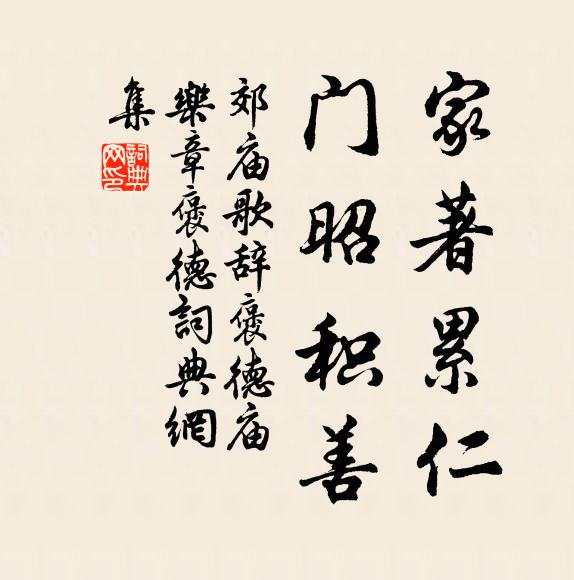 家著累仁
门昭积善
郊庙歌辞褒德庙
樂章褒德詞典網
集
詞典網